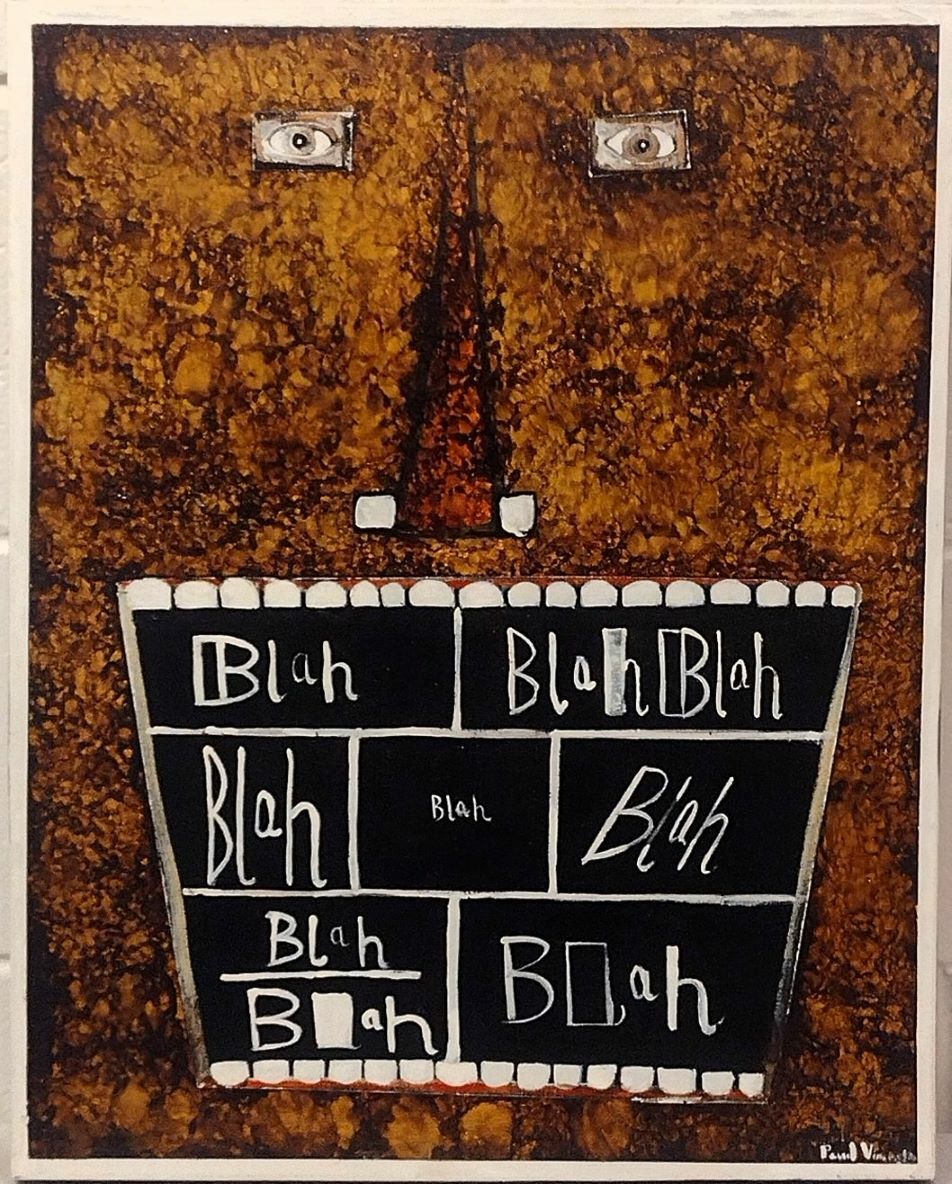 Blah
Blah Blah
Blah
Blah
Blah
Blah
Blah
Blah
Paul